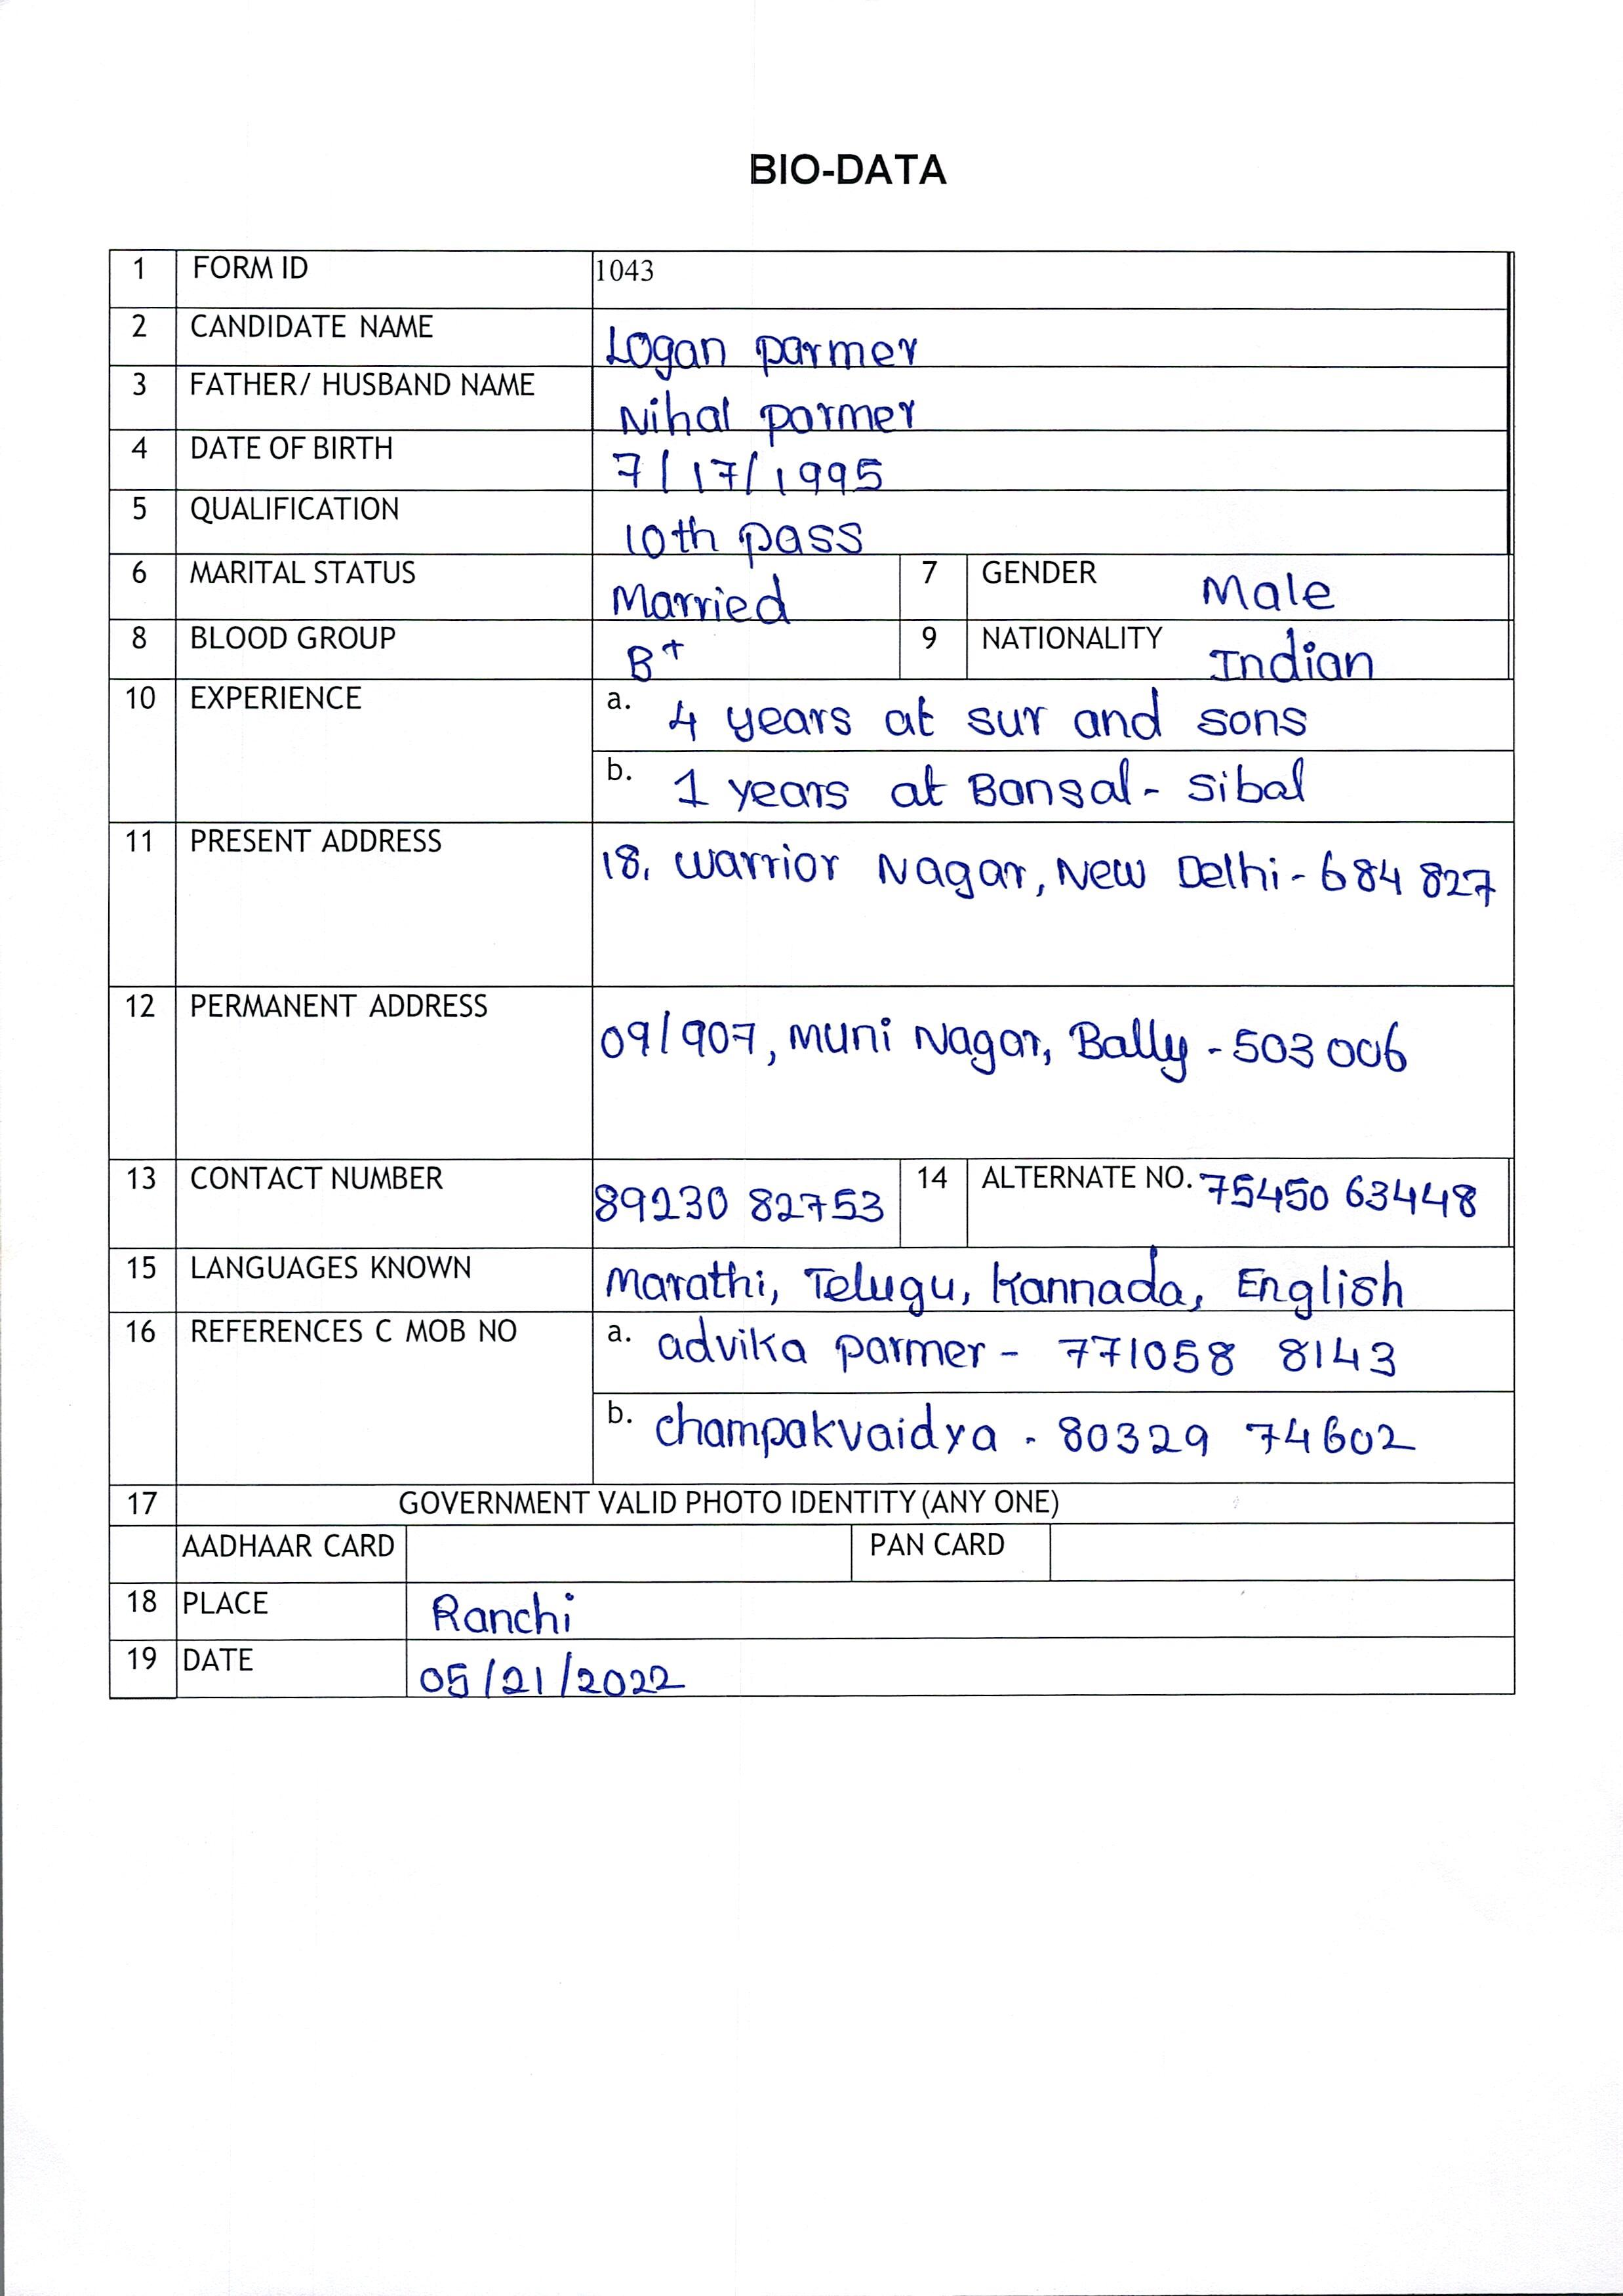 BIO-DATA
1 FORM ID 1043
2 CANDIDATE NAME Logan parmer
3 FATHER/ HUSBAND NAME Nihal parmer
4 DATE OF BIRTH 7/17/1995
5 QUALIFICATION 10th pass
6 MARITAL STATUS Married 7 GENDER Male
8 BLOOD GROUP B+ 9 NATIONALITY Indian
10 EXPERIENCE a. 4 years at sur and sons
b. 1 years at Bansal- Sibal
11 PRESENT ADDRESS 18, warrior Nagar, New Delhi - 684 827
12 PERMANENT ADDRESS 09/907, Muni Nagar, Bally - 503 006
13 CONTACT NUMBER 89230 82753 14 ALTERNATE NO. 75450 63448
15 LANGUAGES KNOWN Marathi, Telugu, Kannada, English
16 REFERENCES C MOB NO a. advika parmer - 771058 8143
b. champakvaidya - 80329 74602
17 GOVERNMENT VALID PHOTO IDENTITY (ANY ONE)
AADHAAR CARD PAN CARD
18 PLACE Ranchi
19 DATE 05/21/2022